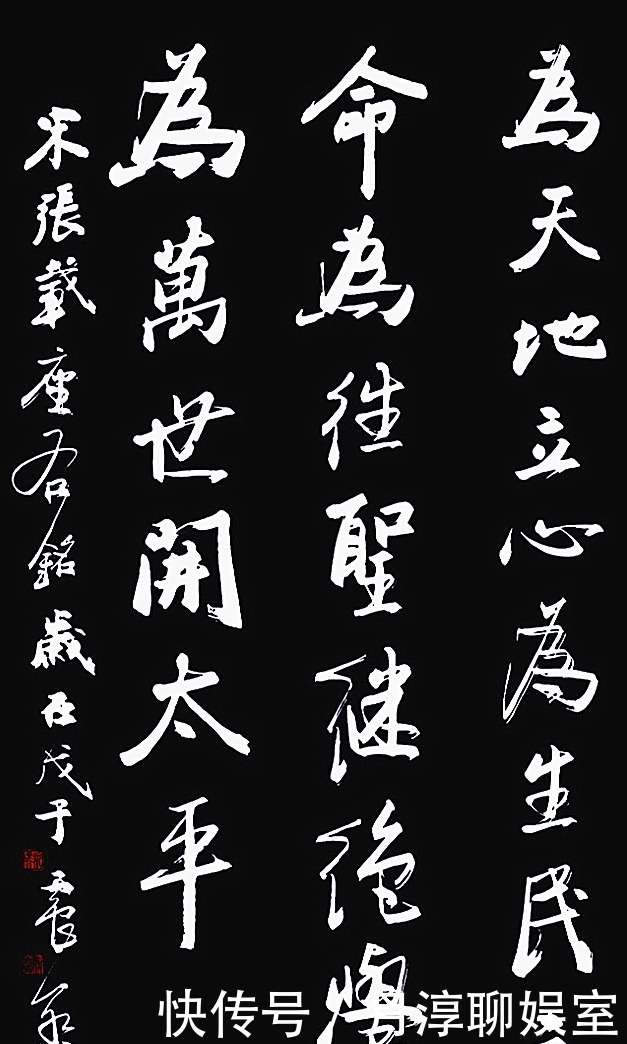 為天地立心為生民
命為往聖継絕學
為萬世開太平
宋張載座右銘歲在戊子
快传号 淳聊娱室